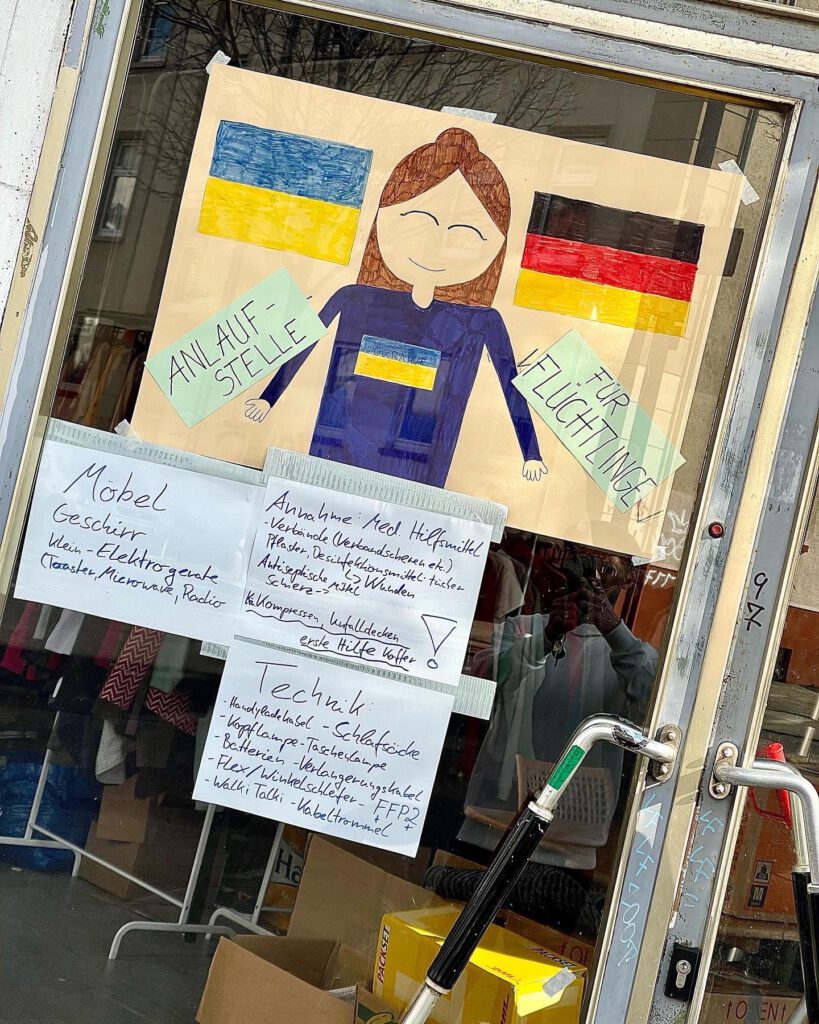 ANLAUF-
STELLE
UKRAINE
FÜR
FLÜCHTLINGE
Möbel
Geschirr
klein-Elektrogeräte
(Toaster, Microwave, Radio
Annahme: Med. Hilfsmittel
-Verbände (Verbandscheren etc.)
Pflaster, Desinfektionsmittel-tücher
Antiseptische Mittel
↳ Wunden
Schere→
Kompressen, Unfalldecken
erste Hilfe Koffer
!
Technik:
-Handyladekabel -Schlafsäcke
-Kopflampe -Taschenlampe
-Batterien -Verlängerungskabel
-Flex/Winkelschleifer - FFP2
-Walki Talki -Kabeltrommel
97
PACKSET
PACKSET
DHL
↑OPEN↑